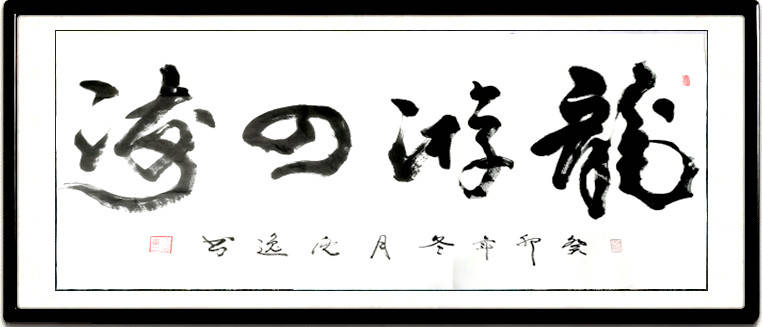 龍游四海
癸卯年冬月沈逸书